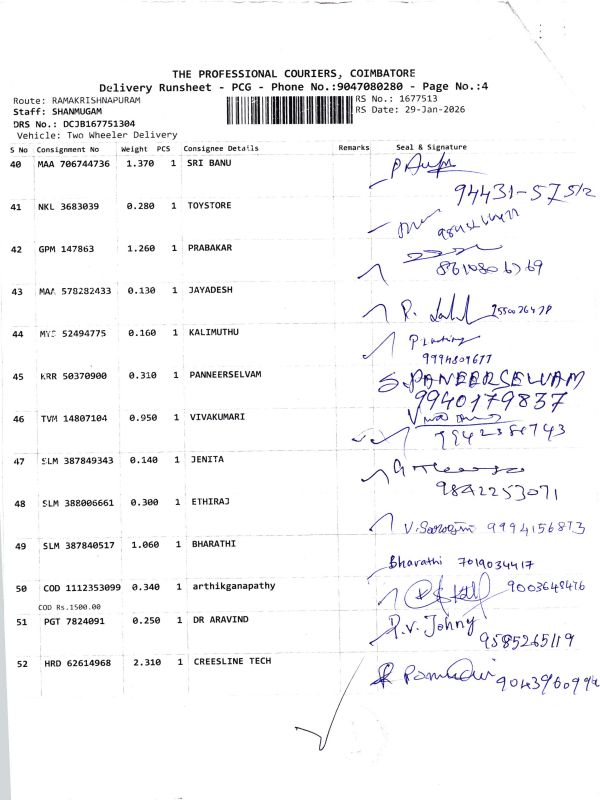 THE PROFESSIONAL COURIERS, COIMBATORE
Delivery Runsheet - PCG - Phone No.:9047080280 - Page No.:4
Route: RAMAKRISHNAPURAM RS No.: 1677513
Staff: SHANMUGAM RS Date: 29-Jan-2026
DRS No.: DCJB167751304
Vehicle: Two Wheeler Delivery
S No Consignment No Weight PCS Consignee Details Remarks Seal & Signature
40 MAA 706744736 1.370 1 SRI BANU
94431-57512
41 NKL 3683039 0.280 1 TOYSTORE
42 GPM 147863 1.260 1 PRABAKAR
43 MAA 578282433 0.130 1 JAYADESH
44 MYS 52494775 0.160 1 KALIMUTHU
9994809677
45 KRR 50370900 0.310 1 PANNEERSELVAM S.PANEERSELVAM
9940179837
46 TVM 14807104 0.950 1 VIVAKUMARI
47 SLM 387849343 0.140 1 JENITA
9842253071
48 SLM 388006661 0.300 1 ETHIRAJ
9994156873
49 SLM 387840517 1.060 1 BHARATHI
Bharathi 7019034417
50 COD 1112353099 0.340 1 arthikganapathy 9003648476
COD Rs.1500.00
51 PGT 7824091 0.250 1 DR ARAVIND P.V. Johny
9585265119
52 HRD 62614968 2.310 1 CREESLINE TECH